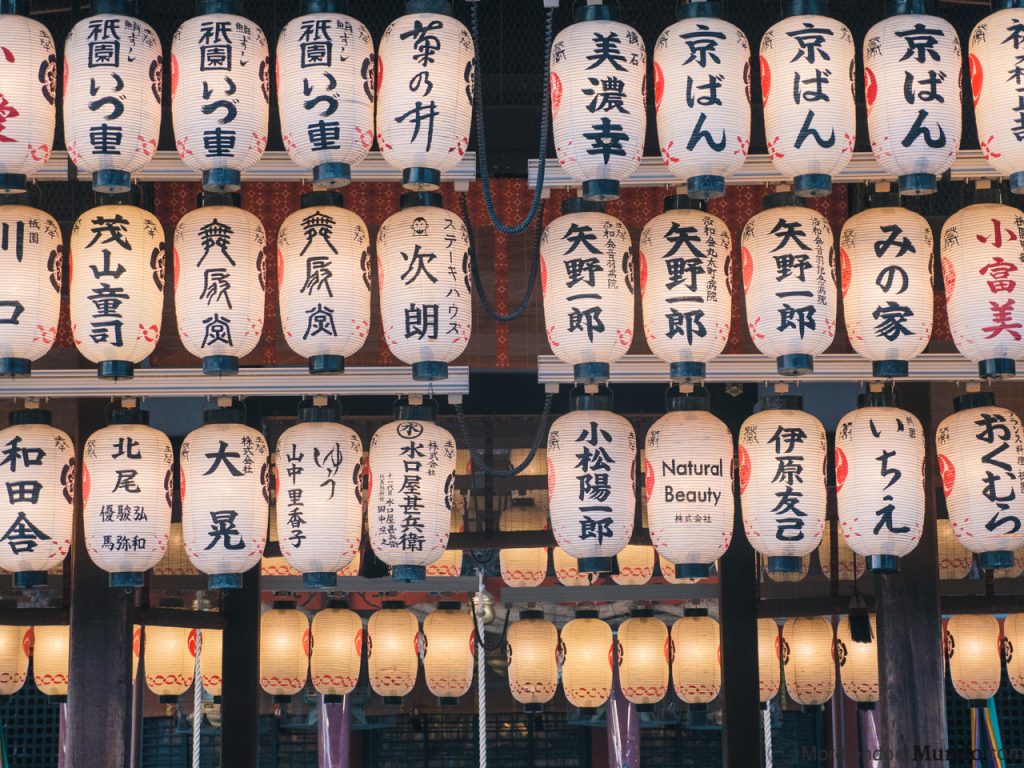 小愛
祇園 いづ重
祇園 いづ重
祇園 いづ重
菊の井
美濃幸
京ばん
京ばん
京ばん
川口 祇園
茂山童司
舞扇堂
舞扇堂
ステーキハウス 次朗
洛和会音羽病院 矢野一郎
洛和会丸太町病院 矢野一郎
矢野一郎
みの家
小富美
和田舎
北尾 優駿弘 馬弥和
株式会社 大晃
ゆう 山中里香子
株式会社 水口屋甚兵衛
小松陽一郎
Natural
Beauty
株式会社
伊原友己
祇園 いちえ
おくむら